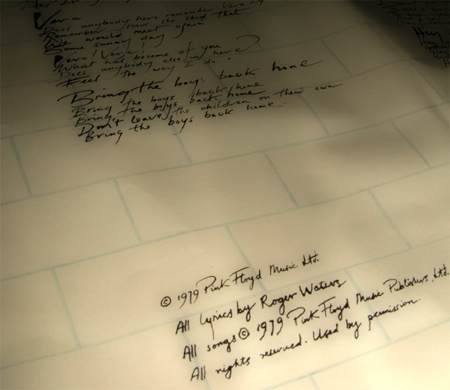 Vera
Does anybody here remember Vera
Remember how she said that
We would meet again
Some sunny day
Vera! Vera!
What has become of you
Does anybody else in here?
Feel the way I do
Bring the boys back home
Bring the boys back home
Bring the boys back home
Don't leave the children on their own
Bring the boys back home
Hey
© 1979 Pink Floyd Music Ltd.
All lyrics by Roger Waters
All songs © 1979 Pink Floyd Music Publishers, Ltd.
All rights reserved. Used by permission.